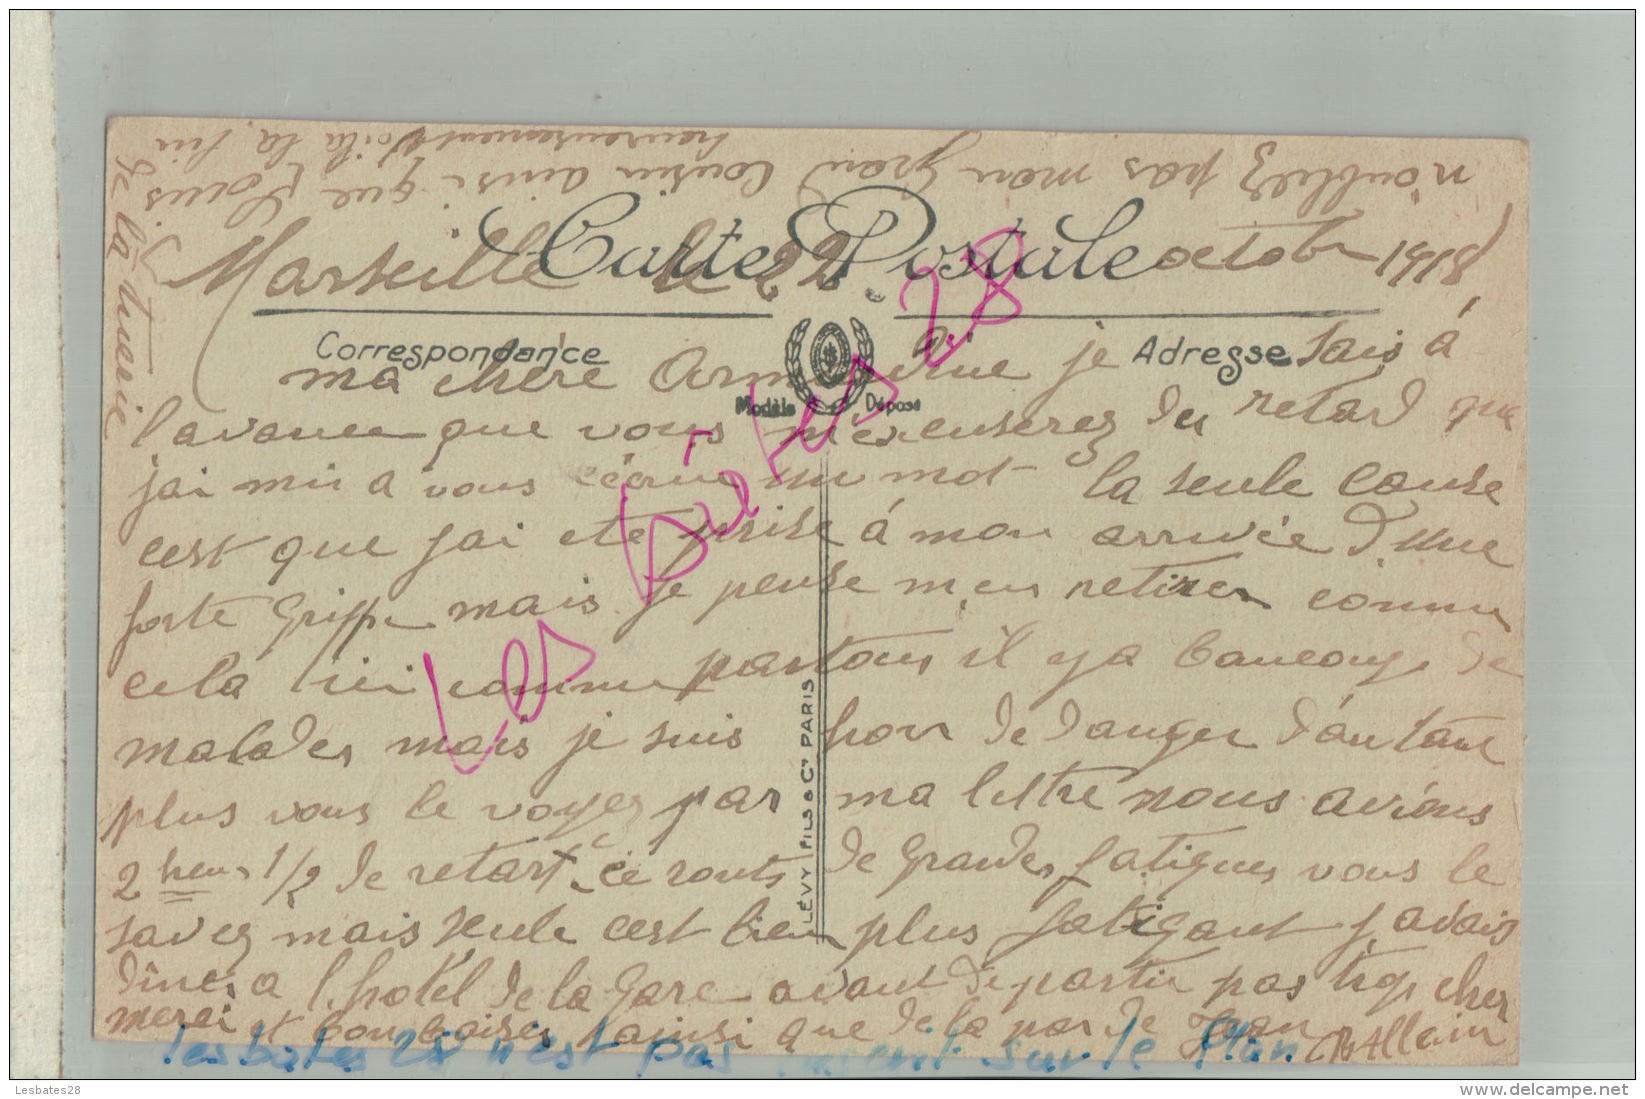 n'oubliez pas mon grand Cousin ainsi que Louis
heureusement voilà la fin
de la tuerie
Carte Postale
Marseille le 22 octobr 1918
Correspondance
Adresse
Modèle Déposé
ma chère Armandine je sais à
l'avance que vous m'excuserez du retard que
j'ai mis a vous écrire un mot la seule cause
cest que j'ai ete prise à mon arrivée d'une
forte Grippe mais je pense m'en retirer comme
cela ici comme partout il y a baucoup de
malades mais je suis hors de danger d'autant
plus vous le voyez par ma lettre nous avions
2 heures 1/2 de retart ce route de grandes fatigues vous le
savez mais seule cest bien plus fatigant j'avais
dîner a l'hotel de la Gare avant de partir pas trop cher
merci et bon baisers ainsi que de la par de Jean Allain
LÉVY FILS & Cie PARIS
Les bates 28
les bates 28 n'est pas présent sur le Plan
Lesbates28
www.delcampe.net